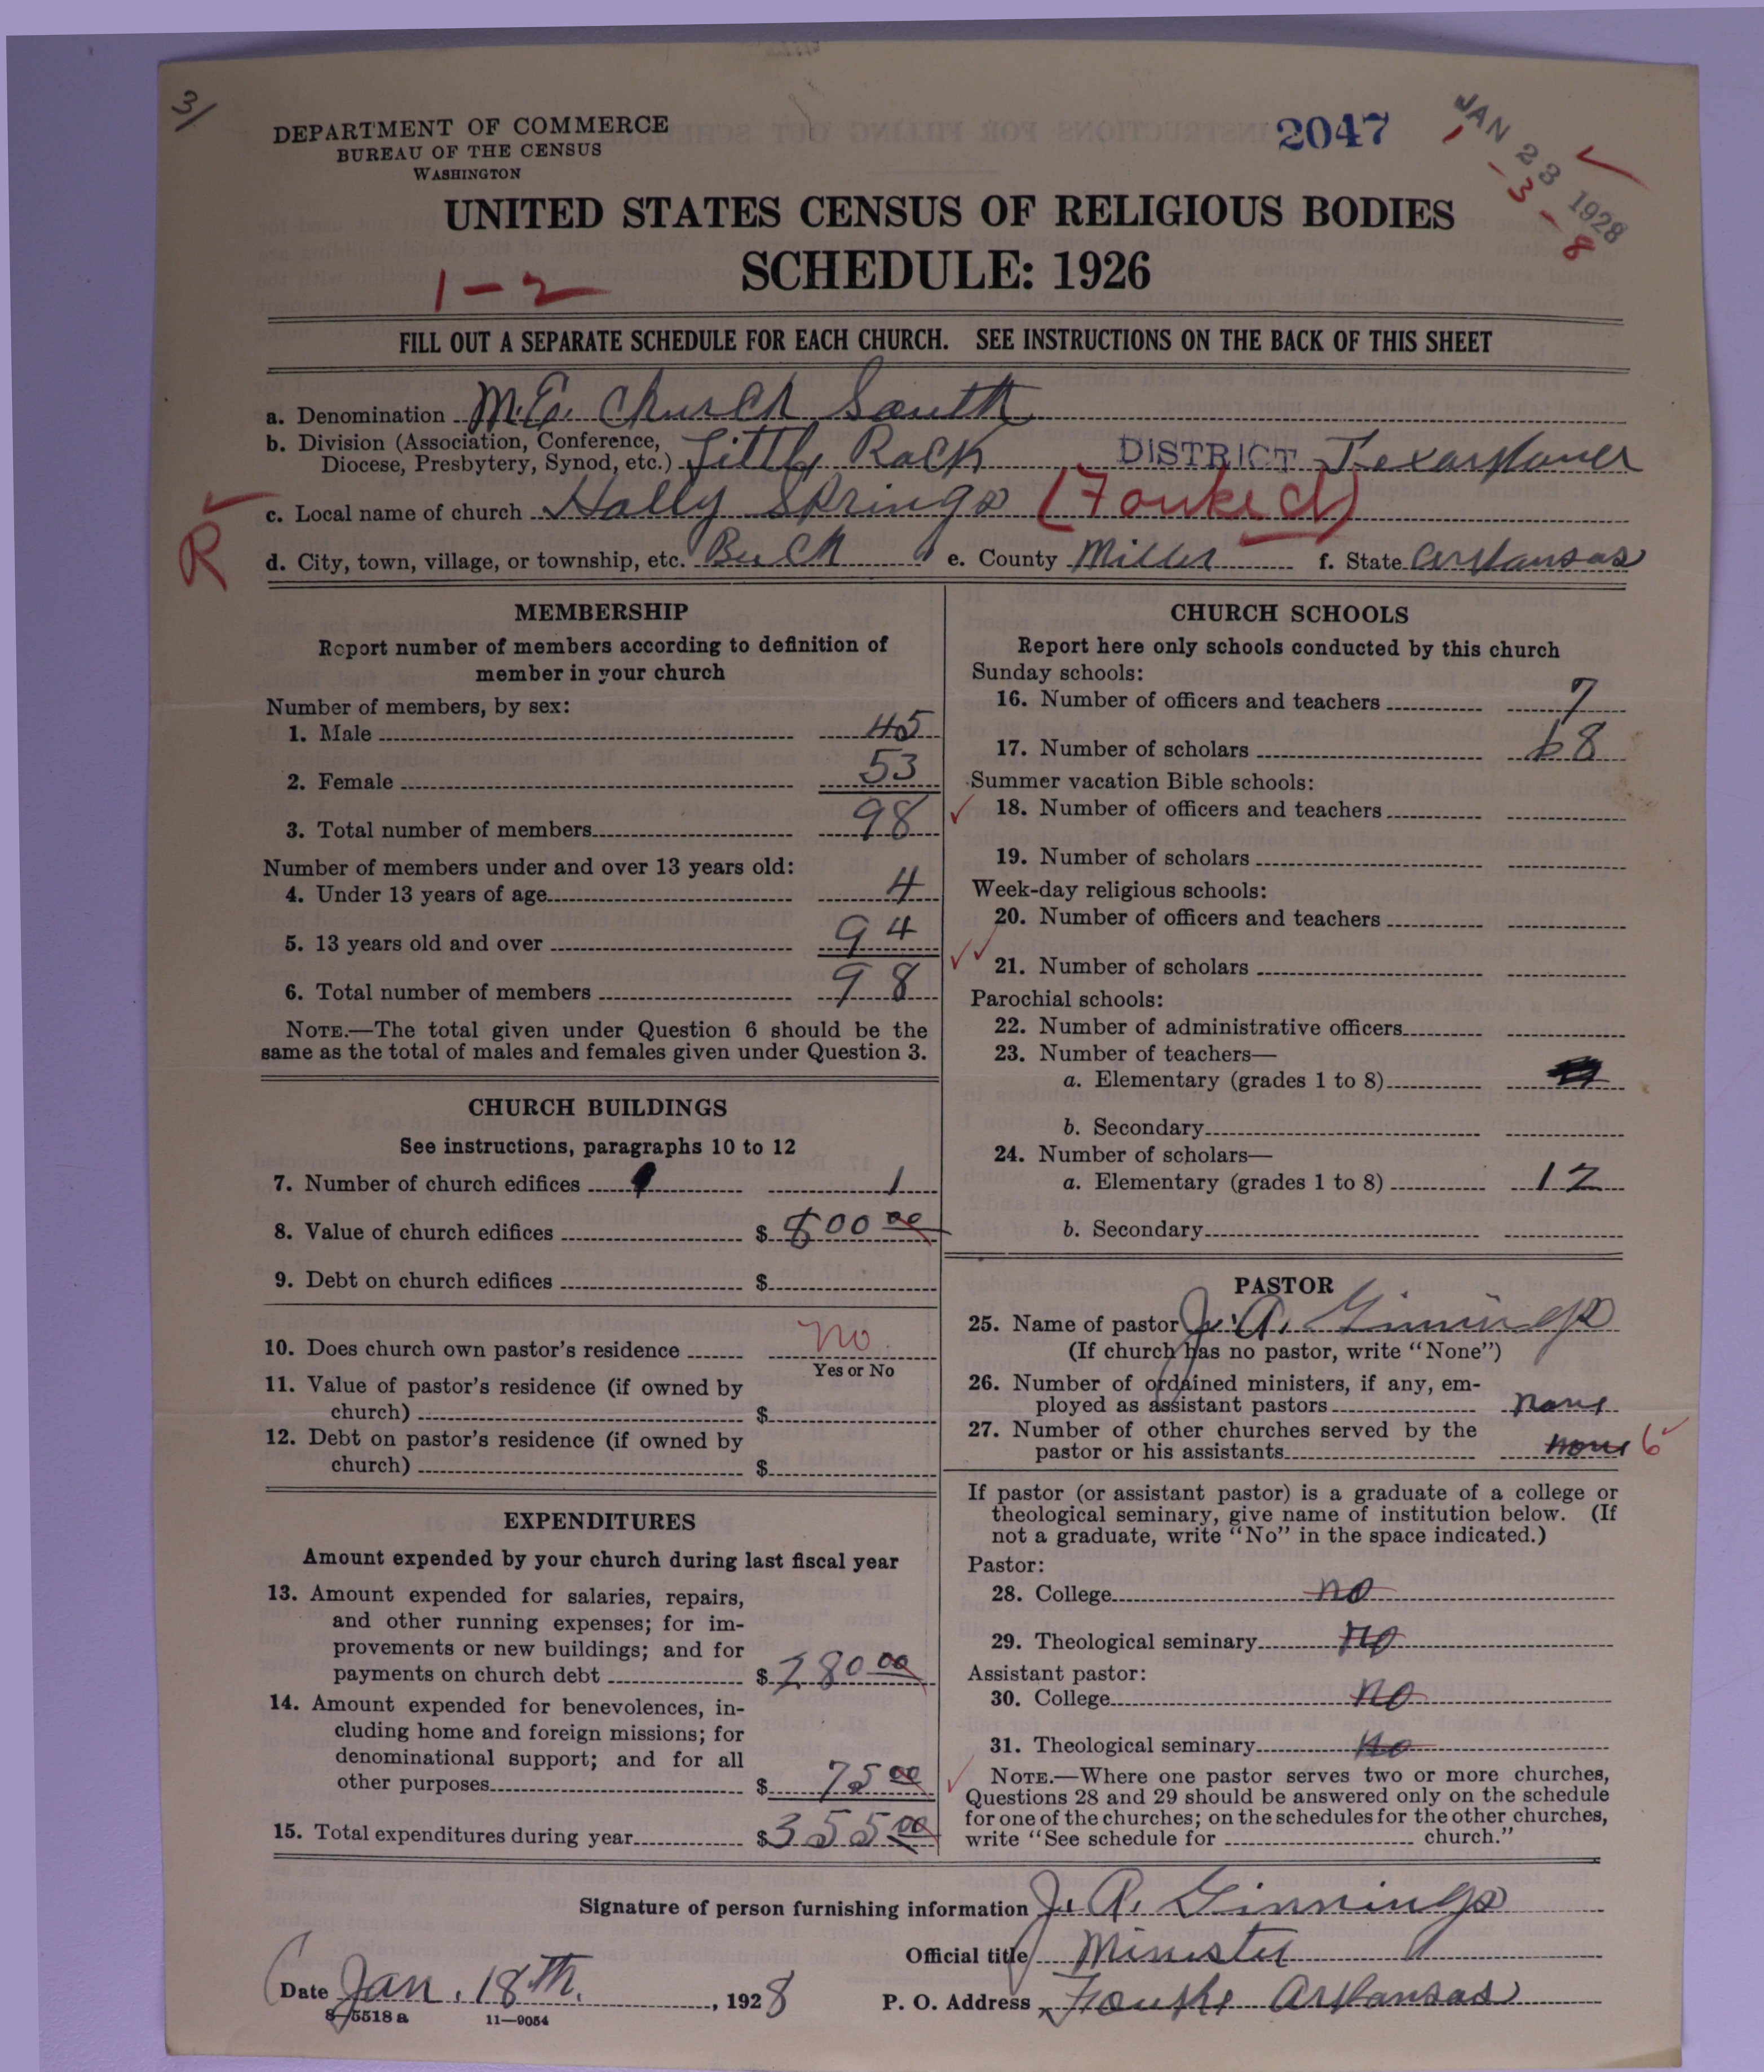 3/
DEPARTMENT OF COMMERCE
BUREAU OF THE CENSUS
WASHINGTON
2047
JAN 23 1928
1-3-8
UNITED STATES CENSUS OF RELIGIOUS BODIES
SCHEDULE: 1926
1-2
FILL OUT A SEPARATE SCHEDULE FOR EACH CHURCH. SEE INSTRUCTIONS ON THE BACK OF THIS SHEET
a. Denomination M.E. Church South
b. Division (Association, Conference,
Diocese, Presbytery, Synod, etc.) Little Rock DISTRICT Texarkana
c. Local name of church Holly Springs (Fouke Ct)
R
d. City, town, village, or township, etc. e. County Miller f. State Arkansas
MEMBERSHIP
Report number of members according to definition of
member in your church
Number of members, by sex:
1. Male 45
2. Female 53
3. Total number of members 98
Number of members under and over 13 years old:
4. Under 13 years of age 4
5. 13 years old and over 94
6. Total number of members 98
NOTE.—The total given under Question 6 should be the
same as the total of males and females given under Question 3.
CHURCH BUILDINGS
See instructions, paragraphs 10 to 12
7. Number of church edifices 1
8. Value of church edifices $ 800 00
9. Debt on church edifices $
10. Does church own pastor's residence no
Yes or No
11. Value of pastor's residence (if owned by
church) $
12. Debt on pastor's residence (if owned by
church) $
EXPENDITURES
Amount expended by your church during last fiscal year
13. Amount expended for salaries, repairs,
and other running expenses; for im-
provements or new buildings; and for
payments on church debt $ 280 00
14. Amount expended for benevolences, in-
cluding home and foreign missions; for
denominational support; and for all
other purposes $ 75 00
15. Total expenditures during year $ 355 00
CHURCH SCHOOLS
Report here only schools conducted by this church
Sunday schools:
16. Number of officers and teachers 7
17. Number of scholars 68
Summer vacation Bible schools:
18. Number of officers and teachers
19. Number of scholars
Week-day religious schools:
20. Number of officers and teachers
21. Number of scholars
Parochial schools:
22. Number of administrative officers
23. Number of teachers—
a. Elementary (grades 1 to 8)
b. Secondary
24. Number of scholars—
a. Elementary (grades 1 to 8) 12
b. Secondary
PASTOR
25. Name of pastor J. A. Ginnings
(If church has no pastor, write "None")
26. Number of ordained ministers, if any, em-
ployed as assistant pastors none
27. Number of other churches served by the
pastor or his assistants none 6
If pastor (or assistant pastor) is a graduate of a college or
theological seminary, give name of institution below. (If
not a graduate, write "No" in the space indicated.)
Pastor:
28. College no
29. Theological seminary no
Assistant pastor:
30. College no
31. Theological seminary no
NOTE.—Where one pastor serves two or more churches,
Questions 28 and 29 should be answered only on the schedule
for one of the churches; on the schedules for the other churches,
write "See schedule for church."
Signature of person furnishing information J. A. Ginnings
Official title Minister
Date Jan. 18th, 1928 P. O. Address Fouke Arkansas
8-5518 a 11—9054